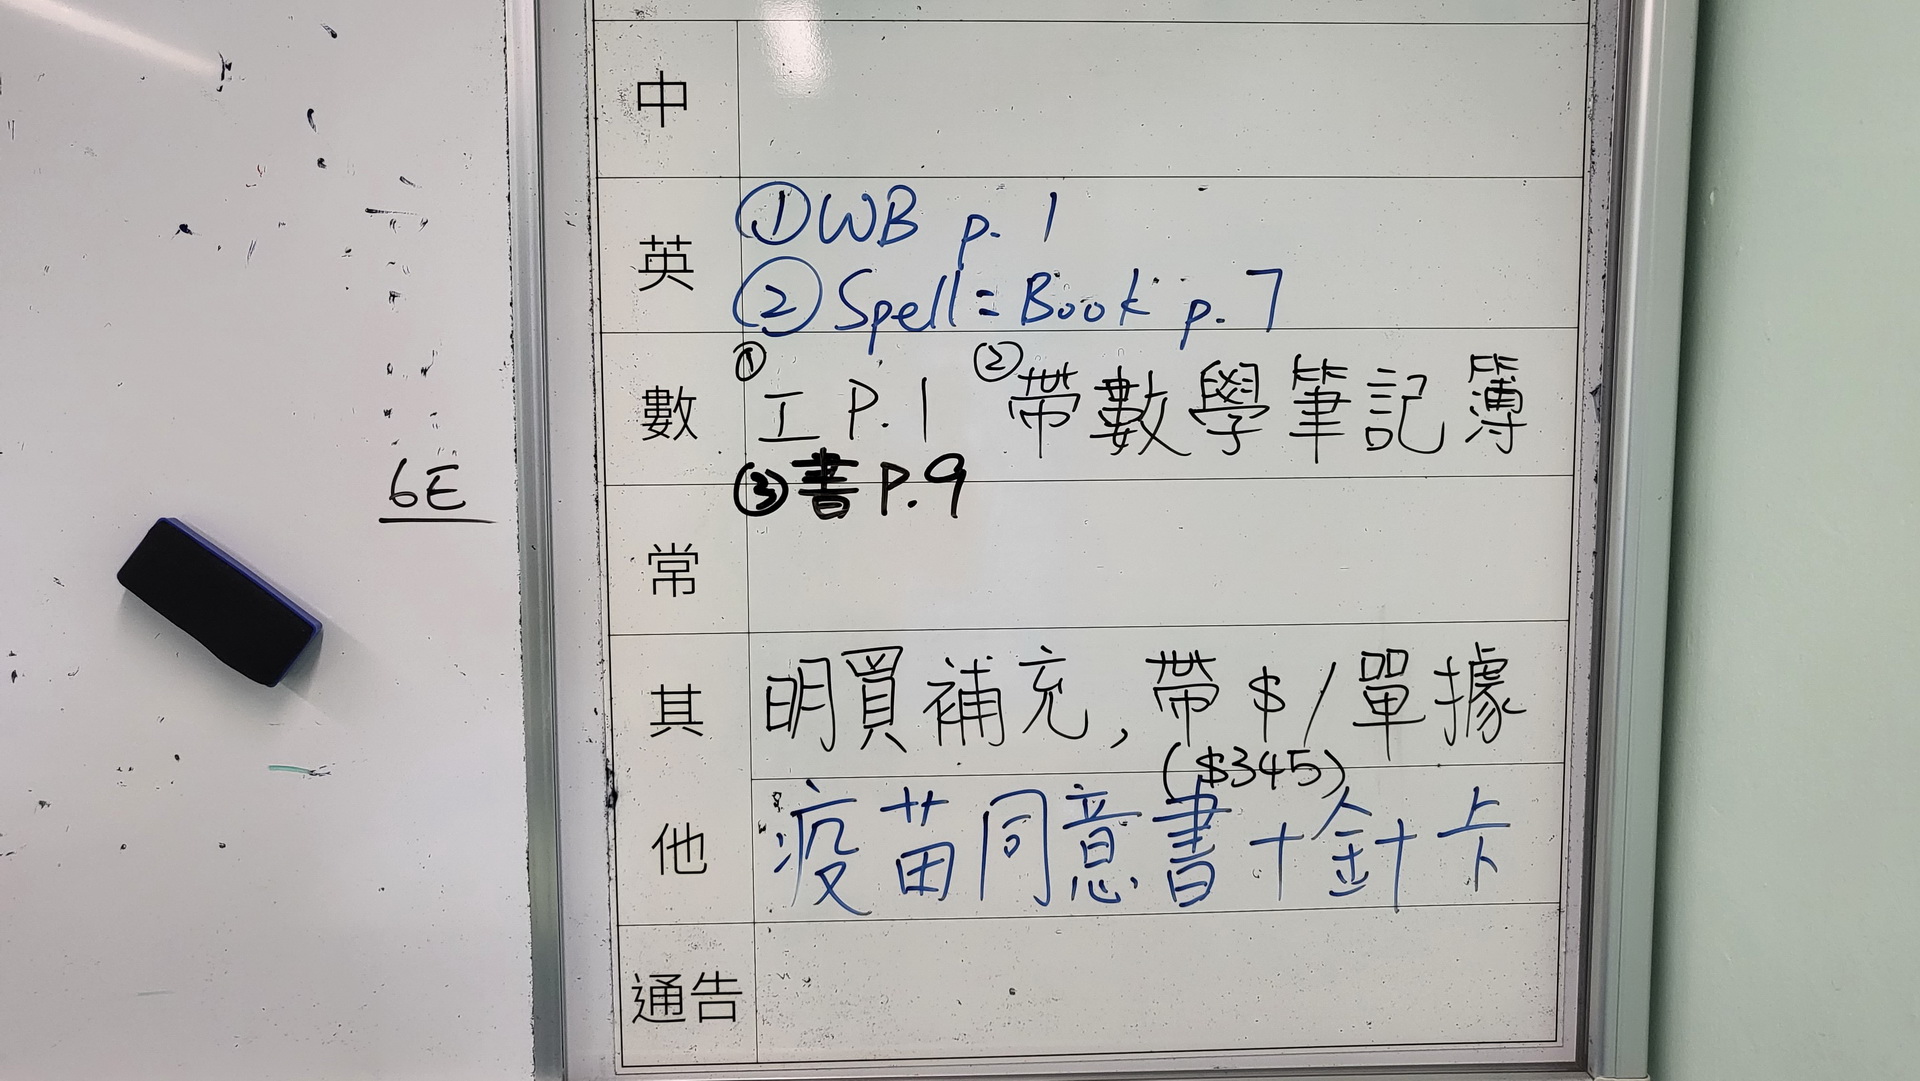 中
英
①WB p. 1
②Spell: Book p. 7
數
① 工 P.1 ② 帶數學筆記簿
③書 P.9
6E
常
其他
明買補充, 帶$/單據
($345)
疫苗同意書+針卡
通告